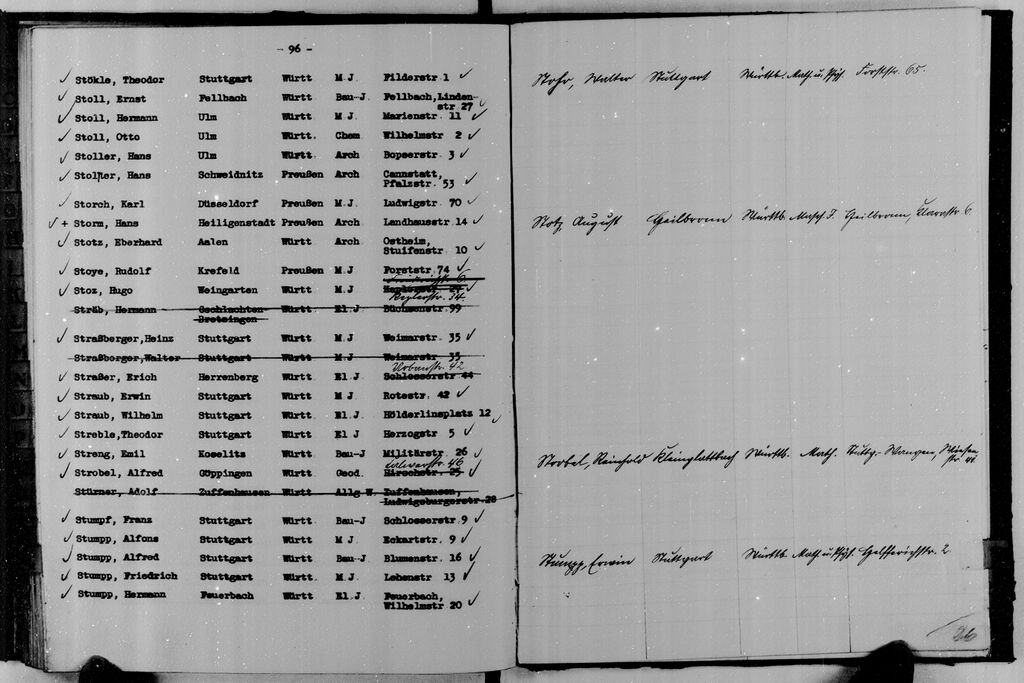 - 96 -
✓ Stökle, Theodor Stuttgart Württ M.J Filderstr 1 ✓
✓ Stoll, Ernst Fellbach Württ Bau-J Fellbach, Linden-
str 27 ✓
✓ Stoll, Hermann Ulm Württ M.J. Marienstr 11 ✓
✓ Stoll, Otto Ulm Württ. Chem Wilhelmstr 2 ✓
✓ Stoller, Hans Ulm Württ. Arch Bopserstr 3 ✓
✓ Stolter, Hans Schweidnitz Preußen Arch Cannstatt,
Pfalzstr. 53 ✓
✓ Storch, Karl Düsseldorf Preußen M.J. Ludwigstr 70 ✓
✓ + Storm, Hans Heiligenstadt Preußen Arch Landhausstr 14 ✓
✓ Stotz, Eberhard Aalen Württ Arch. Ostheim,
Stuifenstr 10 ✓
✓ Stoye, Rudolf Krefeld Preußen M.J Forststr 74 ✓
Friedrichstr 6
✓ Stoz, Hugo Weingarten Württ M.J. ✓
Keplerstr. 34
Sträb, Hermann Gechlachten- Württ El J Büchsenstr 99
Bretzingen
✓ Straßberger, Heinz Stuttgart Württ M.J Weimarstr 35 ✓
Straßberger, Walter Stuttgart Württ M.J Weimarstr 35
Urbanstr. 42
✓ Straßer, Erich Herrenberg Württ El J Schlosserstr 44
✓ Straub, Erwin Stuttgart Württ M J Rotestr. 42 ✓
✓ Straub, Wilhelm Stuttgart Württ. El.J. Hölderlinsplatz 12 ✓
✓ Streble, Theodor Stuttgart Württ El J Herzogstr 5 ✓
✓ Streng, Emil Koselitz Württ Bau-J Militärstr 26 ✓
Calwerstr. 46
✓ Strobel, Alfred Göppingen Württ Geod. Hirschstr 25 ✓
Stürner, Adolf Zuffenhausen Württ Allg W. Zuffenhausen,
Ludwigsburgerstr. 28
✓ Stumpf, Franz Stuttgart Württ Bau-J Schlosserstr 9 ✓
✓ Stumpp, Alfons Stuttgart Württ M J Eckartstr. 9 ✓
✓ Stumpp, Alfred Stuttgart Württ Bau-J Blumenstr. 16 ✓
✓ Stumpp, Friedrich Stuttgart Württ M.J. Lehenstr 13 ✓
✓ Stumpp, Hermann Feuerbach Württ El.J. Feuerbach,
Wilhelmstr 20 ✓
Stohr, Walter Stuttgart Württb. Math u. Phys. Forststr. 65.
Stotz August Heilbronn Württb. Masch J. Heilbronn, Klarastr 6.
Storbel, Reinhold Kleinglattbach Württb. Math. Stuttg.-Wangen, Wiesen
str. 41.
Stumpp, Erwin Stuttgart Württb. Math u. Phys. Helfferichstr. 2
96